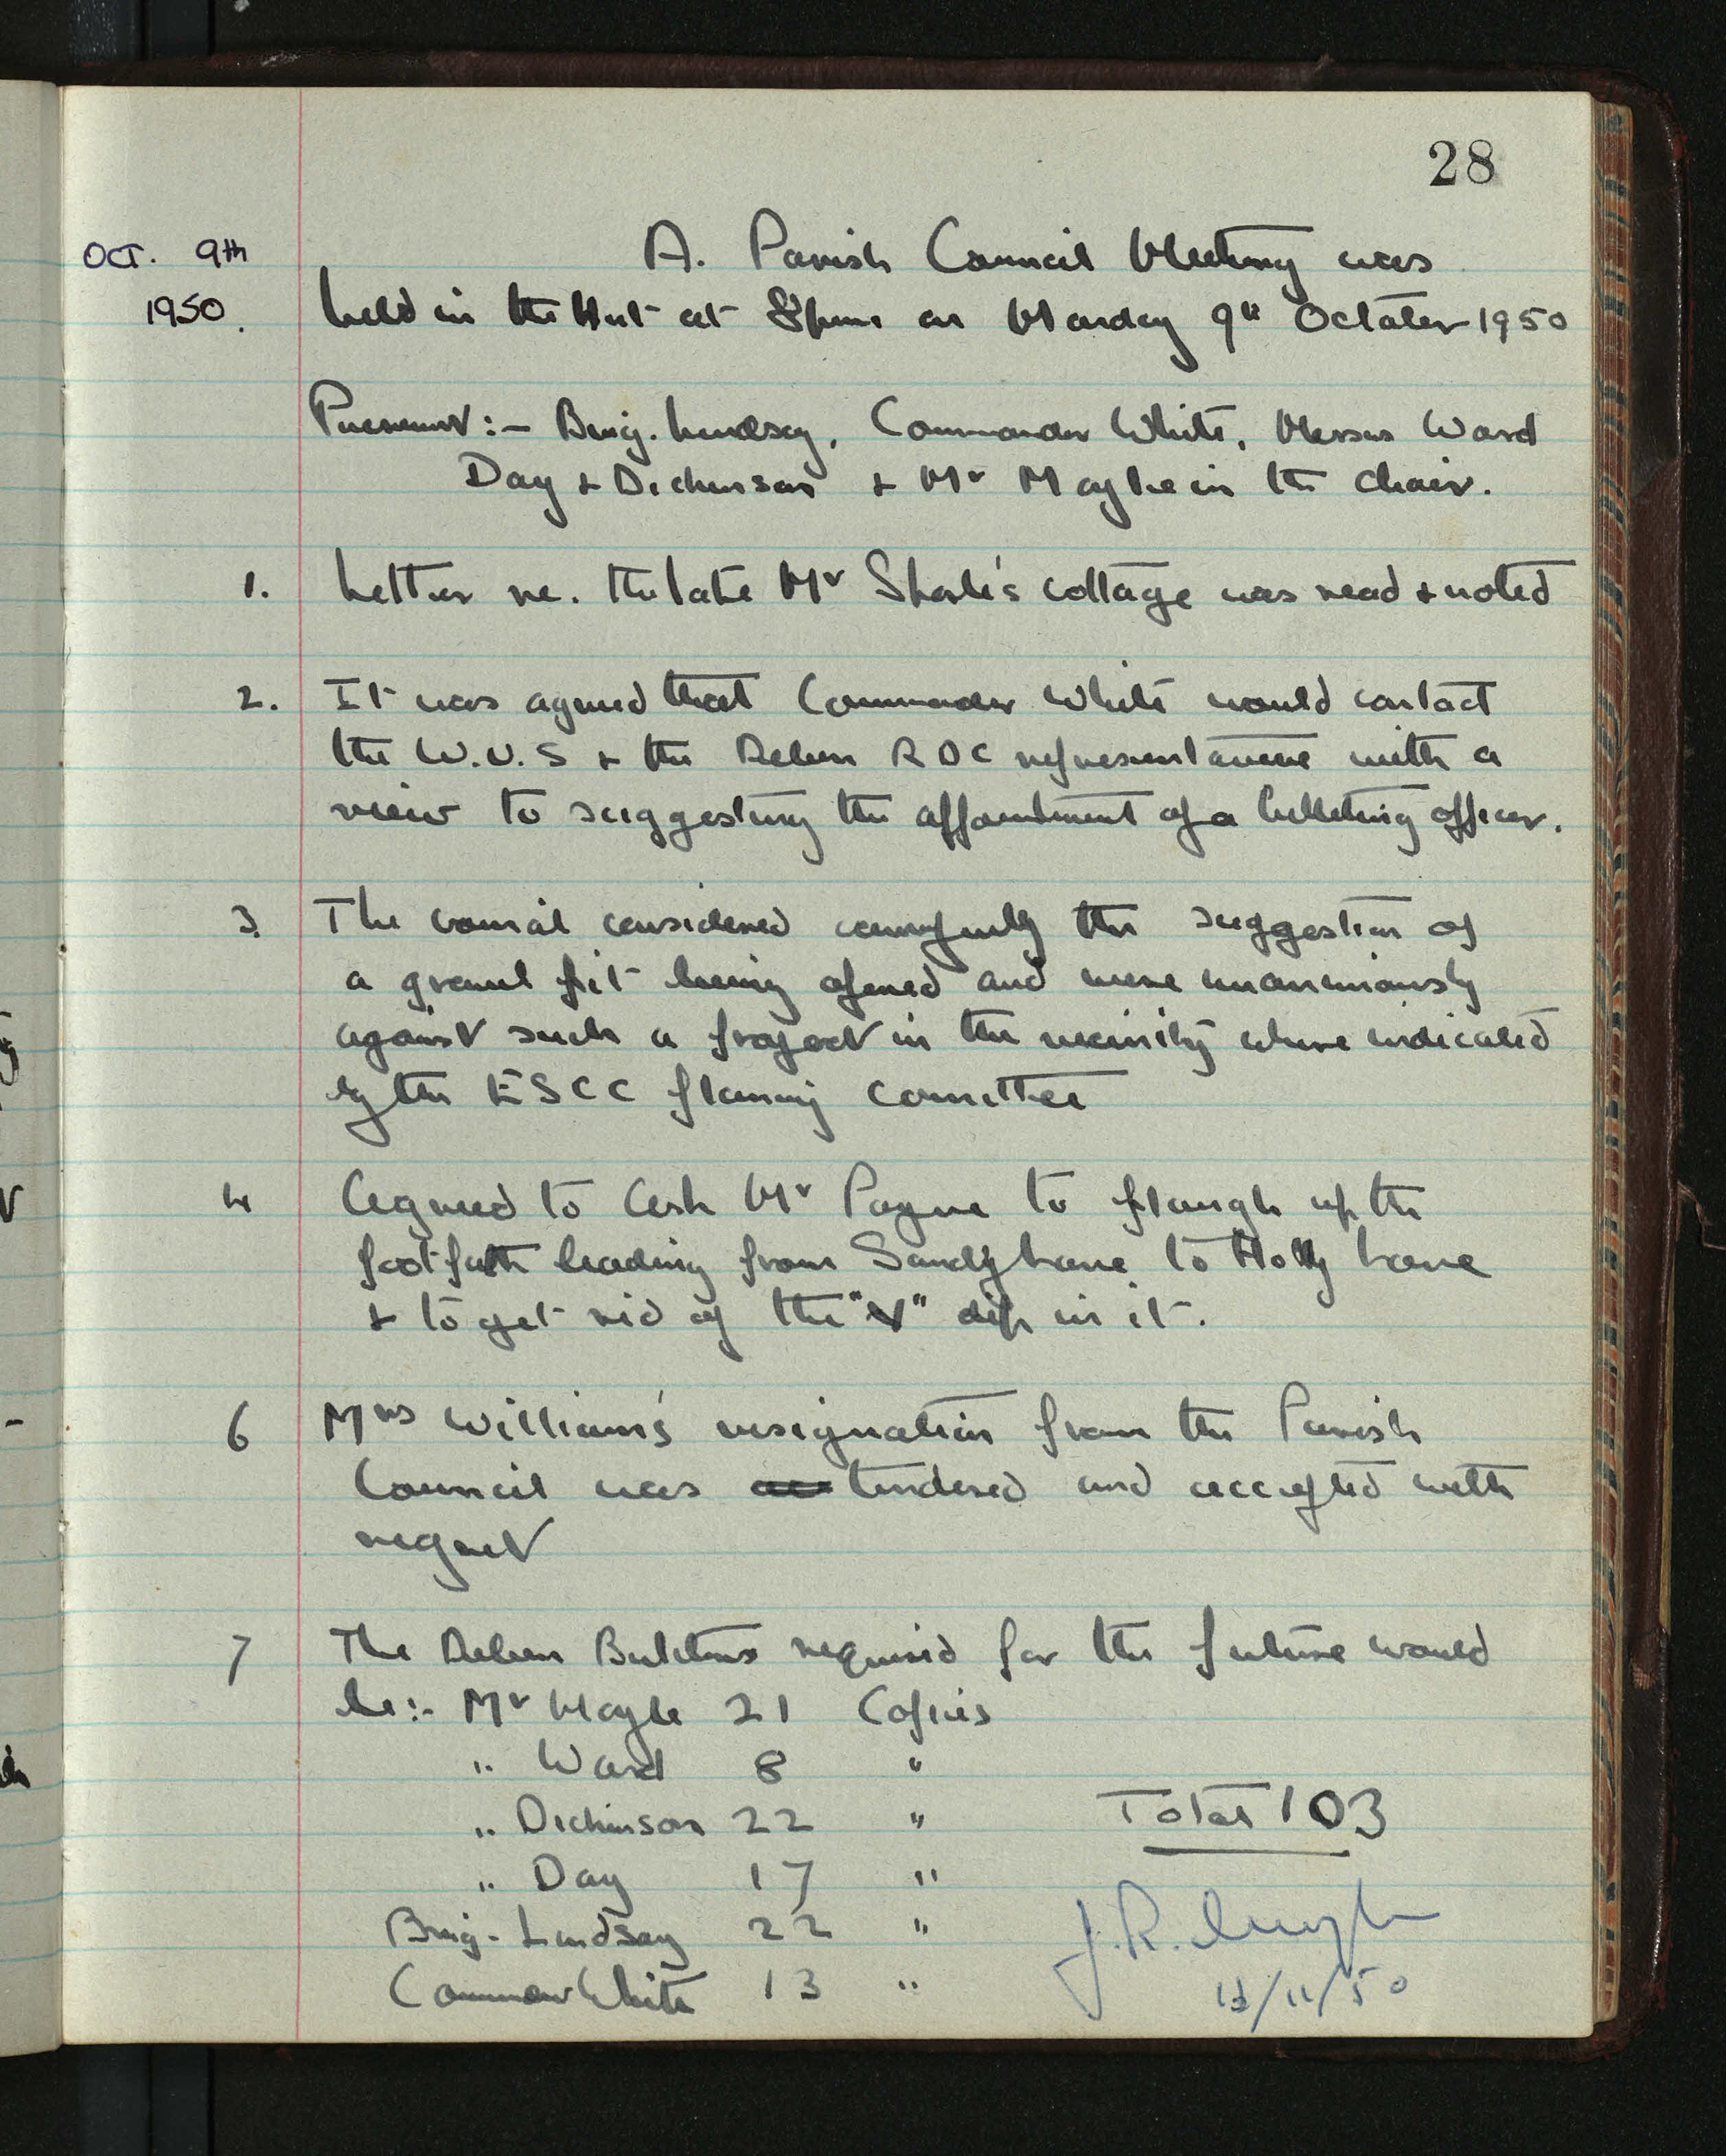 28
OCT. 9th
1950.
A. Parish Council Meeting was
held in the Hut at 8pm on Monday 9th October 1950
Present:- Brig. Lindsay, Commander White, Messrs Ward
Day + Dickinson + Mr Mayhe in the chair.
1. Letter re. the late Mr cottage was read + noted
2. It was agreed that Commander White would contact
the W.V.S + the Deben RDC representative with a
view to suggesting the appointment of a billeting officer.
3. The council considered carefully the suggestion of
a gravel pit being opened and were unanimously
against such a project in the vicinity where indicated
by the ESCC planning comittee
4 Agreed to ask Mr Payne to plough up the
footpath leading from Sandy Lane to Holly Lane
+ to get rid of the "V" dip in it.
6 Mrs William's resignation from the Parish
Council was tendered and accepted with
regret
7 The Deben Buletins required for the future would
be:- Mr 21 Copies
" Ward 8 "
" Dickinson 22 "
Total 103
" Day 17 "
Brig. Lindsay 22 "
Commdr White 13 "
J.R.
/11/50